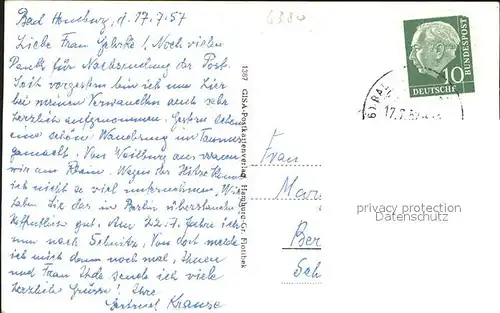 Bad Homburg, d. 17.7.57
Liebe Frau Gehrke! Noch vielen
Dank für Nachsendung der Post.
Seit vorgestern bin ich nun hier
bei meinen Verwandten auch sehr
herzlich aufgenommen. Gestern haben
eine schöne Wanderung im Taunus
gemacht. Von Weilburg aus waren
wir am Rhein. Wegen der Hitze kann
ich nicht so viel unternehmen. Wie
haben Sie das in Berlin überstanden
Hoffentlich gut. Am 22.7. fahre ich
nun nach . Von dort melde
ich mich dann noch mal. Ihnen
und Frau Ihde sende ich viele
herzliche Grüsse! Ihre
Gertrud Krause
1387 GISA-Postkartenverlag, Hamburg-Gr. Flottbek
10
DEUTSCHE
BUNDESPOST
17.7.57
Frau
Mar
Ber
Sch
privacy protection